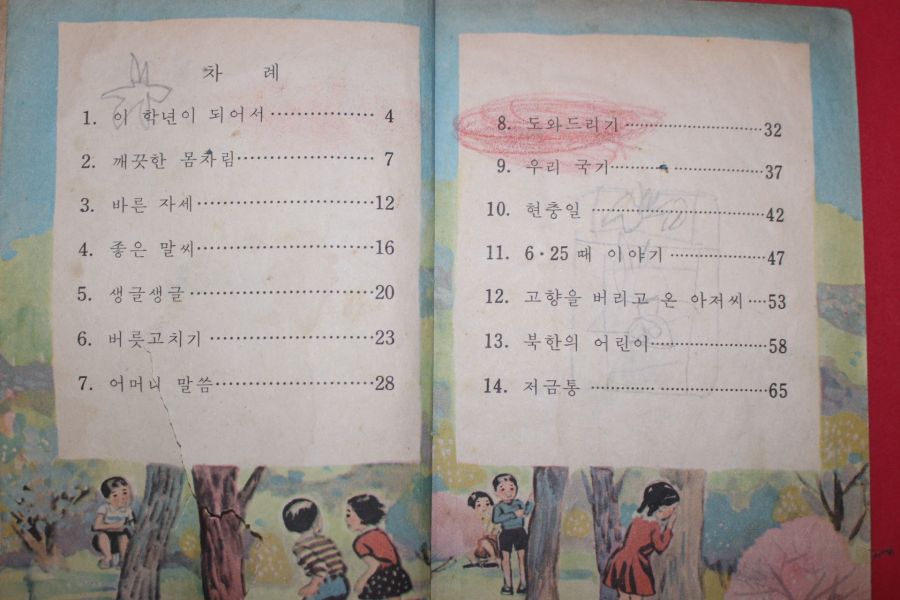 차 례
1. 이 학년이 되어서 ················ 4
2. 깨끗한 몸차림····················· 7
3. 바른 자세···························12
4. 좋은 말씨···························16
5. 생글생글····························20
6. 버릇고치기 ························23
7. 어머니 말씀························28
8. 도와드리기·························32
9. 우리 국기···························37
10. 현충일 ····························42
11. 6·25 때 이야기 ··················47
12. 고향을 버리고 온 아저씨 ····53
13. 북한의 어린이···················58
14. 저금통 ····························65